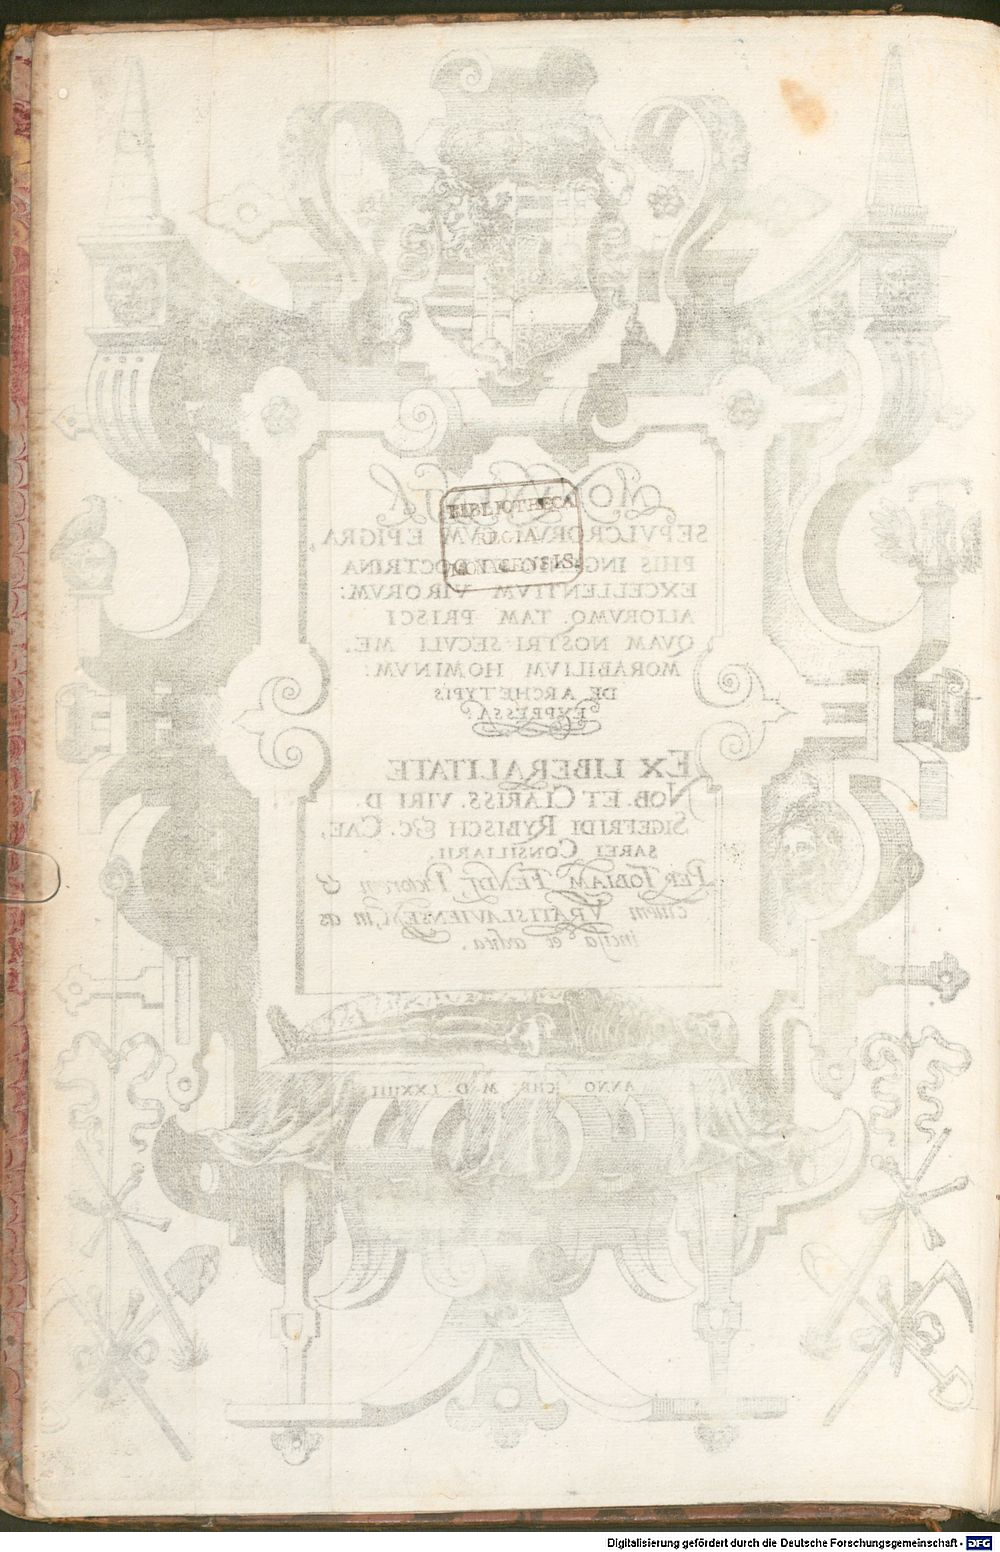 MONVMENTA
SEPVLCRORVM CVM EPIGRA,
PHIS INGENIO ET DOCTRINA
EXCELLENTIVM VIRORVM:
ALIORVMQ. TAM PRISCI
QVAM NOSTRI SECVLI ME,
MORABILIVM HOMINVM:
DE ARCHETYPIS
EXPRESSA.
EX LIBERALITATE
NOB. ET CLARISS. VIRI D.
SIGEFRIDI RYBISCH &c. CAE,
SAREI CONSILIARII.
PER TOBIAM FENDT, Pictorem &
ciuem VRATISLAVIENSEM, in æs
incisa et ædita.
ANNO CHR: M. D. LXXIIII
BIBLIOTHECA
REGIA
MONACENSIS.
Digitalisierung gefördert durch die Deutsche Forschungsgemeinschaft - DFG